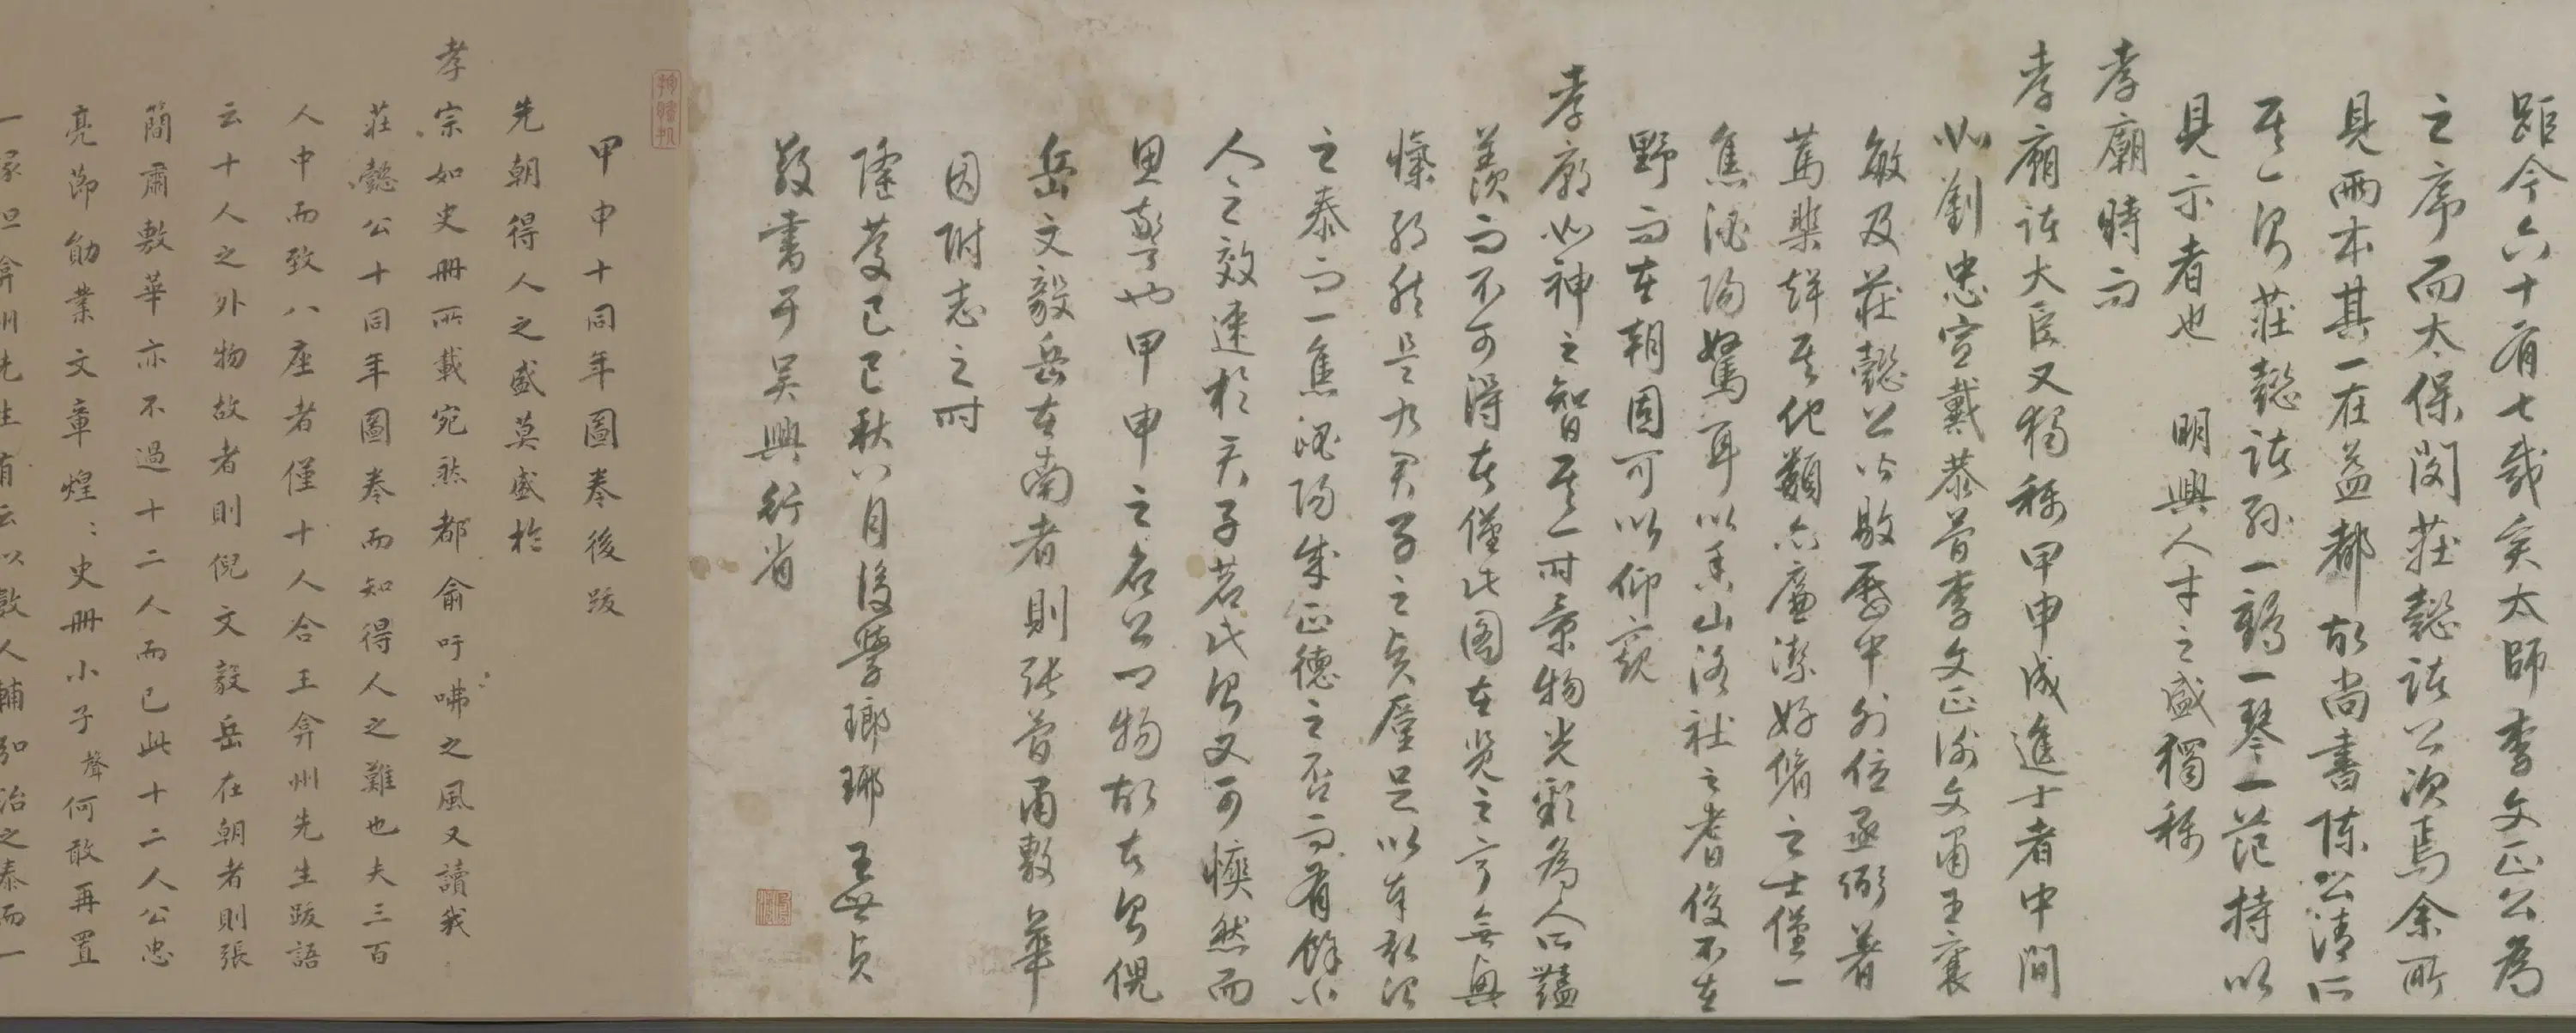 距今六十有七載矣太師李文正公為
之序而太保閔莊懿諸公次焉余所
見兩本其一在益都故尚書陳公清所
其一為莊懿諸孫一鶴一琴一范持以
見示者也 明興人才之盛獨稱
孝廟時而
孝廟諸大臣又獨稱甲申成進士者中間
如劉忠宣戴恭簡李文正謝文肅王襄
敏及莊懿公皆敭歷中外位丞弼著
篤棐烑其他類亦廉潔好脩之士僅一
焦泌陽駑耳以香山洛社之耆俊不在
野而在朝固可以仰窺
孝廟如神之智其一時景物光彩為人所豔
羨而不可得者僅此圖在覽之寧無興
慨邪然是九君子之貞厪足以奉弘治
之泰而一焦泌陽成正德之否而有餘小
人之效速於君子若此豈又可懊然而
思警也甲申之名公卿物故者為倪
岳文毅岳在南者則張簡肅敷華
因附志之時
隆慶己巳秋八月後學瑯琊王世貞
敬書于吳興行省
甲申十同年圖卷後跋
先朝得人之盛莫盛於
孝宗如史冊所載宛然都俞吁咈之風又讀我
莊懿公十同年圖卷而知得人之難也夫三百
人中而致八座者僅十人合王弇州先生跋語
云十人之外物故者則倪文毅岳在朝者則張
簡肅敷華亦不過十二人而已此十二人公忠
亮節勛業文章煌〻史冊小子聲何敢再置
一喙但弇州先生有云以數人輔弘治之泰而一